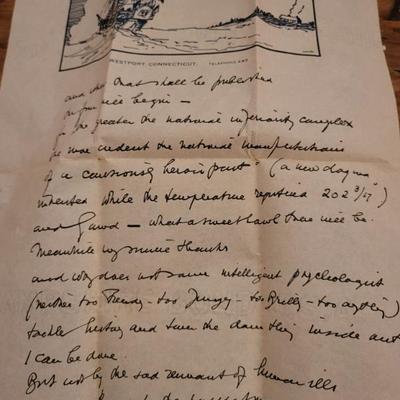 WESTPORT, CONNECTICUT. TELEPHONE
and that shall be published
we begin —
the greater the national inferiority complex
the more evident the national manifestations
of a consciously heroic past" (a new dogma
invented while the temperature registered 202 3/17°)
and Gawd — what a sweet howl there will be.
Meanwhile my sincere thanks
and why does not some intelligent psychologist
(neither too Freudy - too Jungy - too Brilly - too anything)
tackle history and turn the damn thing inside out
I can be done.
But not by the sad remnant of human ills